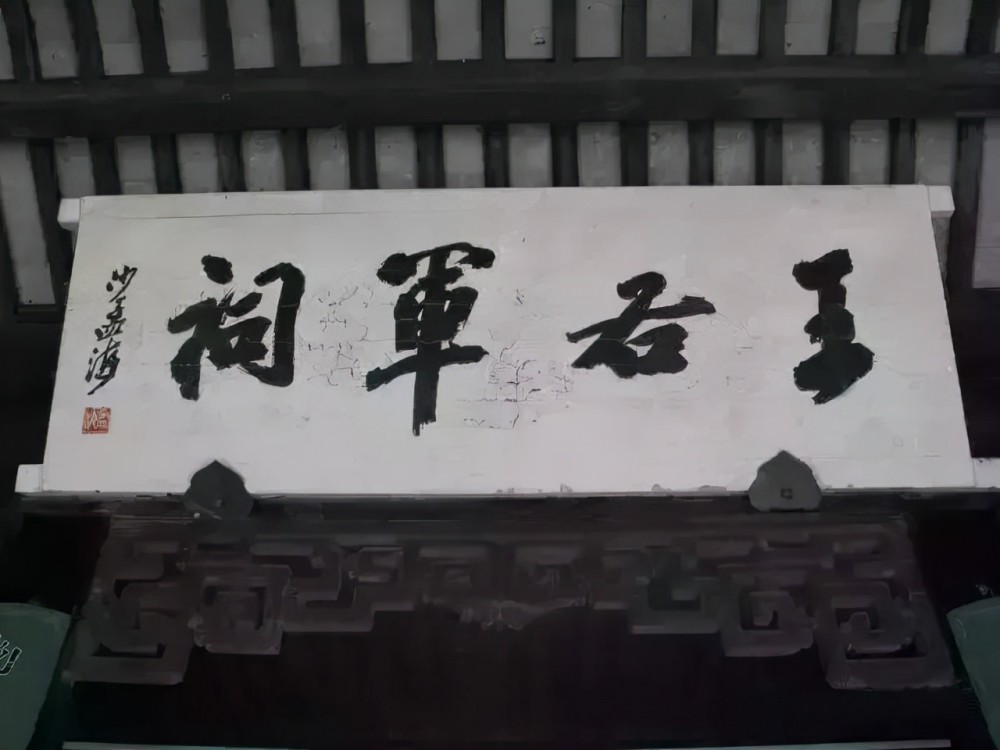 王右軍祠
沙孟海